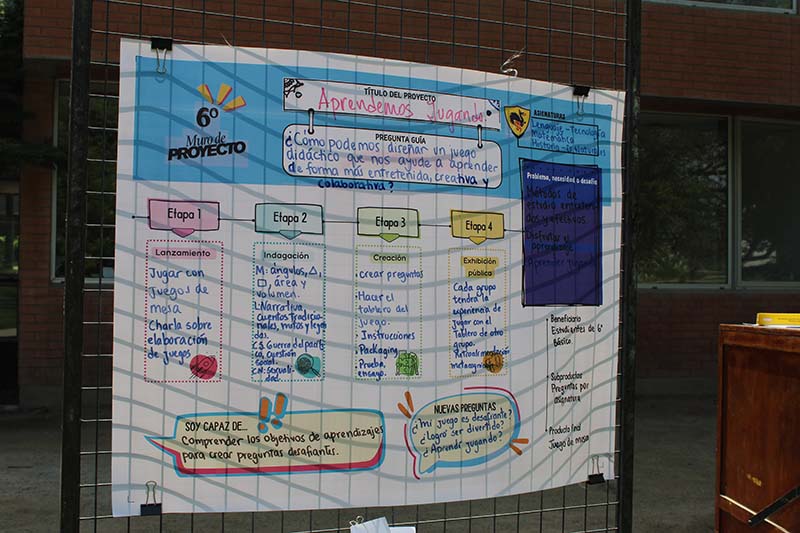 6º
Muro de
PROYECTO
TÍTULO DEL PROYECTO
Aprendemos Jugando.
PREGUNTA GUÍA
¿Cómo podemos diseñar un juego
didáctico que nos ayude a aprender
de forma más entretenida, creativa y
colaborativa?
ASIGNATURAS
Lenguaje - Tecnología
Matemática
Historia -
Problema, necesidad o desafío
Métodos de
estudio
y efectivos.
Disfrutar el
aprendizaje
aprender jugando
Etapa 1
Lanzamiento
Jugar con
Juegos de
mesa
Charla sobre
elaboración
de juegos
Etapa 2
Indagación
M: ángulos, △,
□, área y
volumen.
L: Narrativa,
cuentos tradicio-
nales, mitos y leyen
das.
C.S: Guerra del pacífi
co, cuestión
social.
CN: sexuali-
dad.
Etapa 3
Creación
crear preguntas
Hacer el
tablero del
juego.
Instrucciones
Packaging
Prueba,
ensayo.
Etapa 4
Exhibición
pública
Cada grupo
tendrá la
experiencia de
Jugar con el
Tablero de otro
grupo.
Retroalimentación
metacognición
• Beneficiario
Estudiantes de 6º
Básico.
• Subproductos
Preguntas por
asignatura
• Producto final
Juego de mesa
SOY CAPAZ DE...
Comprender los objetivos de aprendizajes
para crear preguntas desafiantes.
NUEVAS PREGUNTAS
¿Mi juego es desafiante?
¿Logró ser divertido?
¿Aprendí jugando?